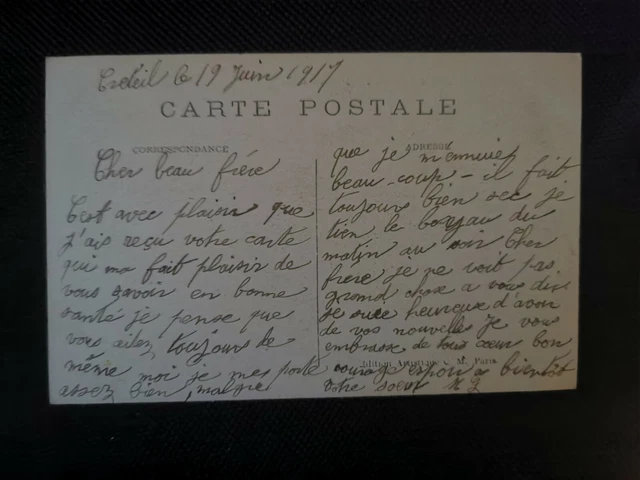 Creteil le 19 Juin 1917
CARTE POSTALE
CORRESPONDANCE
Cher beau frére
C'est avec plaisir que
j'ais reçu votre carte
qui ma fait plaisir de
vous savoir en bonne
santé je pense que
vous allez toujours de
même moi je mes porte
assez bien, malgre
ADRESSE
que je m'ennuiet
beau-coup - il fait
toujours bien sec je
tien le boyau du
matin au soir Cher
frére je ne voit pas
grand chose a vous dire
je suis heureuse d'avoir
de vos nouvelles je vous
embrasse de tous cœur bon
courage espoir a bientôt
votre soeur